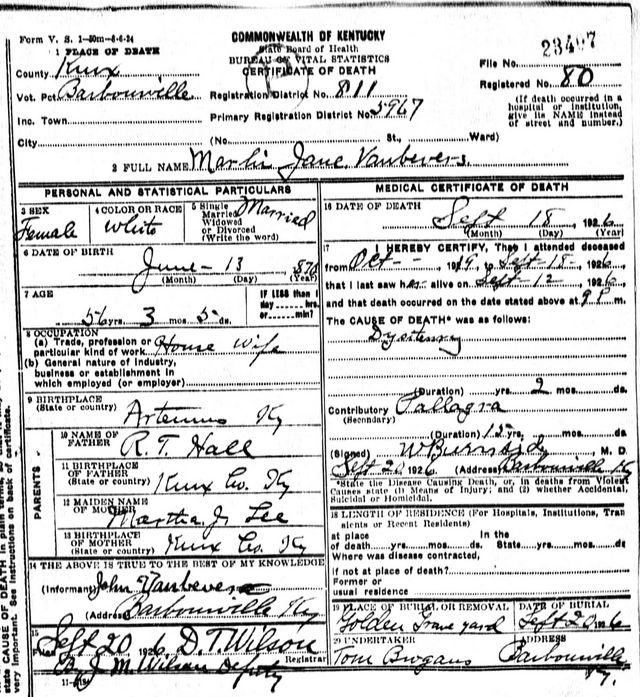 Form V. S. 1-50m-8-6-24
COMMONWEALTH OF KENTUCKY
State Board of Health
BUREAU OF VITAL STATISTICS
CERTIFICATE OF DEATH
File No. 23407
Registered No. 80
(If death occurred in a hospital or institution, give its NAME instead of street and number.)
1 PLACE OF DEATH
County Knox
Vot. Pct. Barbourville
Registration District No. 811
Inc. Town
Primary Registration District No. 5967
City (No. St., Ward)
2 FULL NAME Jane Vanbever
PERSONAL AND STATISTICAL PARTICULARS
3 SEX Female
4 COLOR OR RACE White
5 Single Married Widowed or Divorced (Write the word) Married
6 DATE OF BIRTH June - 13 870
(Month) (Day) (Year)
7 AGE 56 yrs. 3 mos. 5 ds.
IF LESS than 1 day.....hrs. or.....min?
8 OCCUPATION
(a) Trade, profession or particular kind of work House Wife
(b) General nature of industry, business or establishment in which employed (or employer)
9 BIRTHPLACE (State or country) Artemus Ky
PARENTS
10 NAME OF FATHER R. T. Hall
11 BIRTHPLACE OF FATHER (State or country) Knox Co. Ky
12 MAIDEN NAME OF MOTHER Martha J. Lee
13 BIRTHPLACE OF MOTHER (State or country) Knox Co. Ky
14 THE ABOVE IS TRUE TO THE BEST OF MY KNOWLEDGE
(Informant) John Vanbever
(Address) Barbourville Ky
15 Filed Sept 20 1926 D. T. Wilson
Registrar
By J M. Wilson Deputy
MEDICAL CERTIFICATE OF DEATH
16 DATE OF DEATH
Sept 18 1926
(Month) (Day) (Year)
17 I HEREBY CERTIFY, That I attended deceased
from Oct - - 1919, to Sept-18- 1926
that I last saw her alive on Sept-12 1926,
and that death occurred on the date stated above at 9 P m.
The CAUSE OF DEATH* was as follows:
Dysentery
(Duration) yrs. 2 mos. ds.
Contributory Pallagra
(Secondary)
(Duration) yrs. mos. ds.
(Signed) M. D.
Sept 20 1926 (Address) Barbourville Ky
*State the Disease Causing Death, or, in deaths from Violent Causes state (1) Means of Injury; and (2) whether Accidental, Suicidal or Homicidal.
18 LENGTH OF RESIDENCE (For Hospitals, Institutions, Transients or Recent Residents)
at place of death.....yrs.....mos.....ds. In the State.....yrs.....mos.....ds.
Where was disease contracted,
if not at place of death?
Former or usual residence
19 PLACE OF BURIAL OR REMOVAL
Golden Grave yard
DATE OF BURIAL
Sept 20 1926
20 UNDERTAKER
Tom Brogans
ADDRESS
Barbourville Ky.
state CAUSE OF DEATH in plain
very important. See instructions on back of certificate.